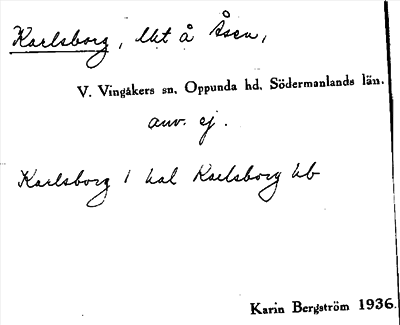 Karlsborg, lht å Åsen,
V. Vingåkers sn. Oppunda hd. Södermanlands län.
anv. ej.
Karlsborg 1 hal Karlsborg hb
Karin Bergström 1936.